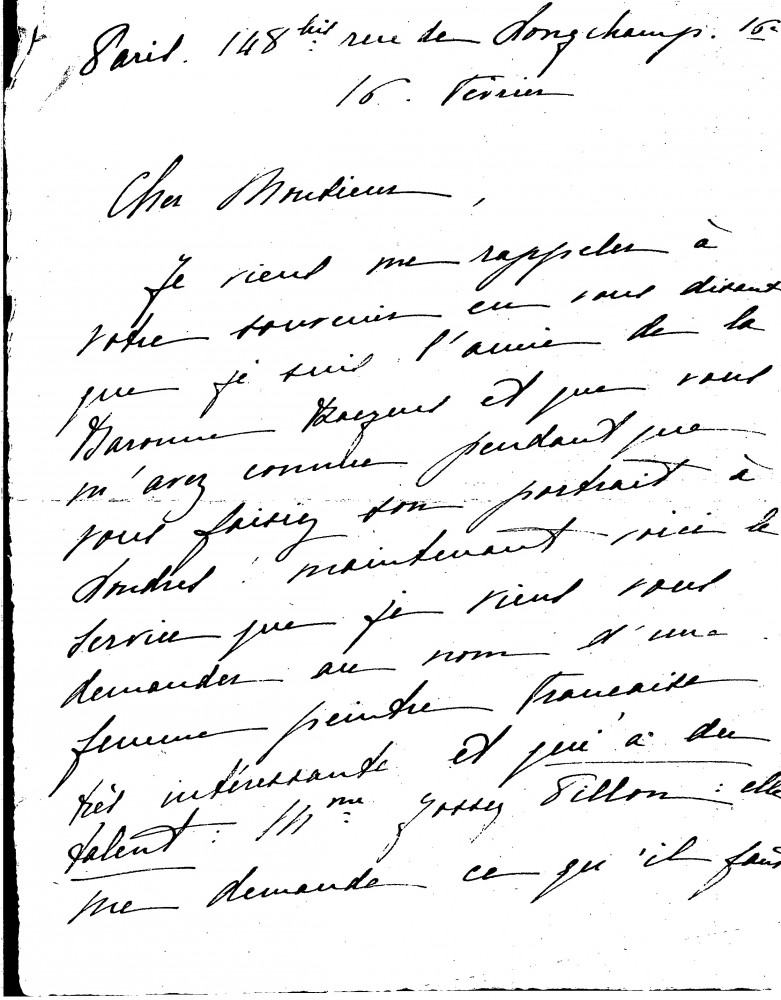 Paris. 148 bis rue de Longchamp. 16e
16. Février
Cher Monsieur,
Je viens me rappeler à
votre souvenir en vous disant
que je suis l'amie de la
Baronne et que vous
m'avez connue pendant que
vous faisiez son portrait à
Londres. maintenant voici le
service que je viens vous
demander au nom d'une
femme peintre Française
très intéressante et qui a du
talent : Mme Fillon : elle
me demande ce qu'il faut